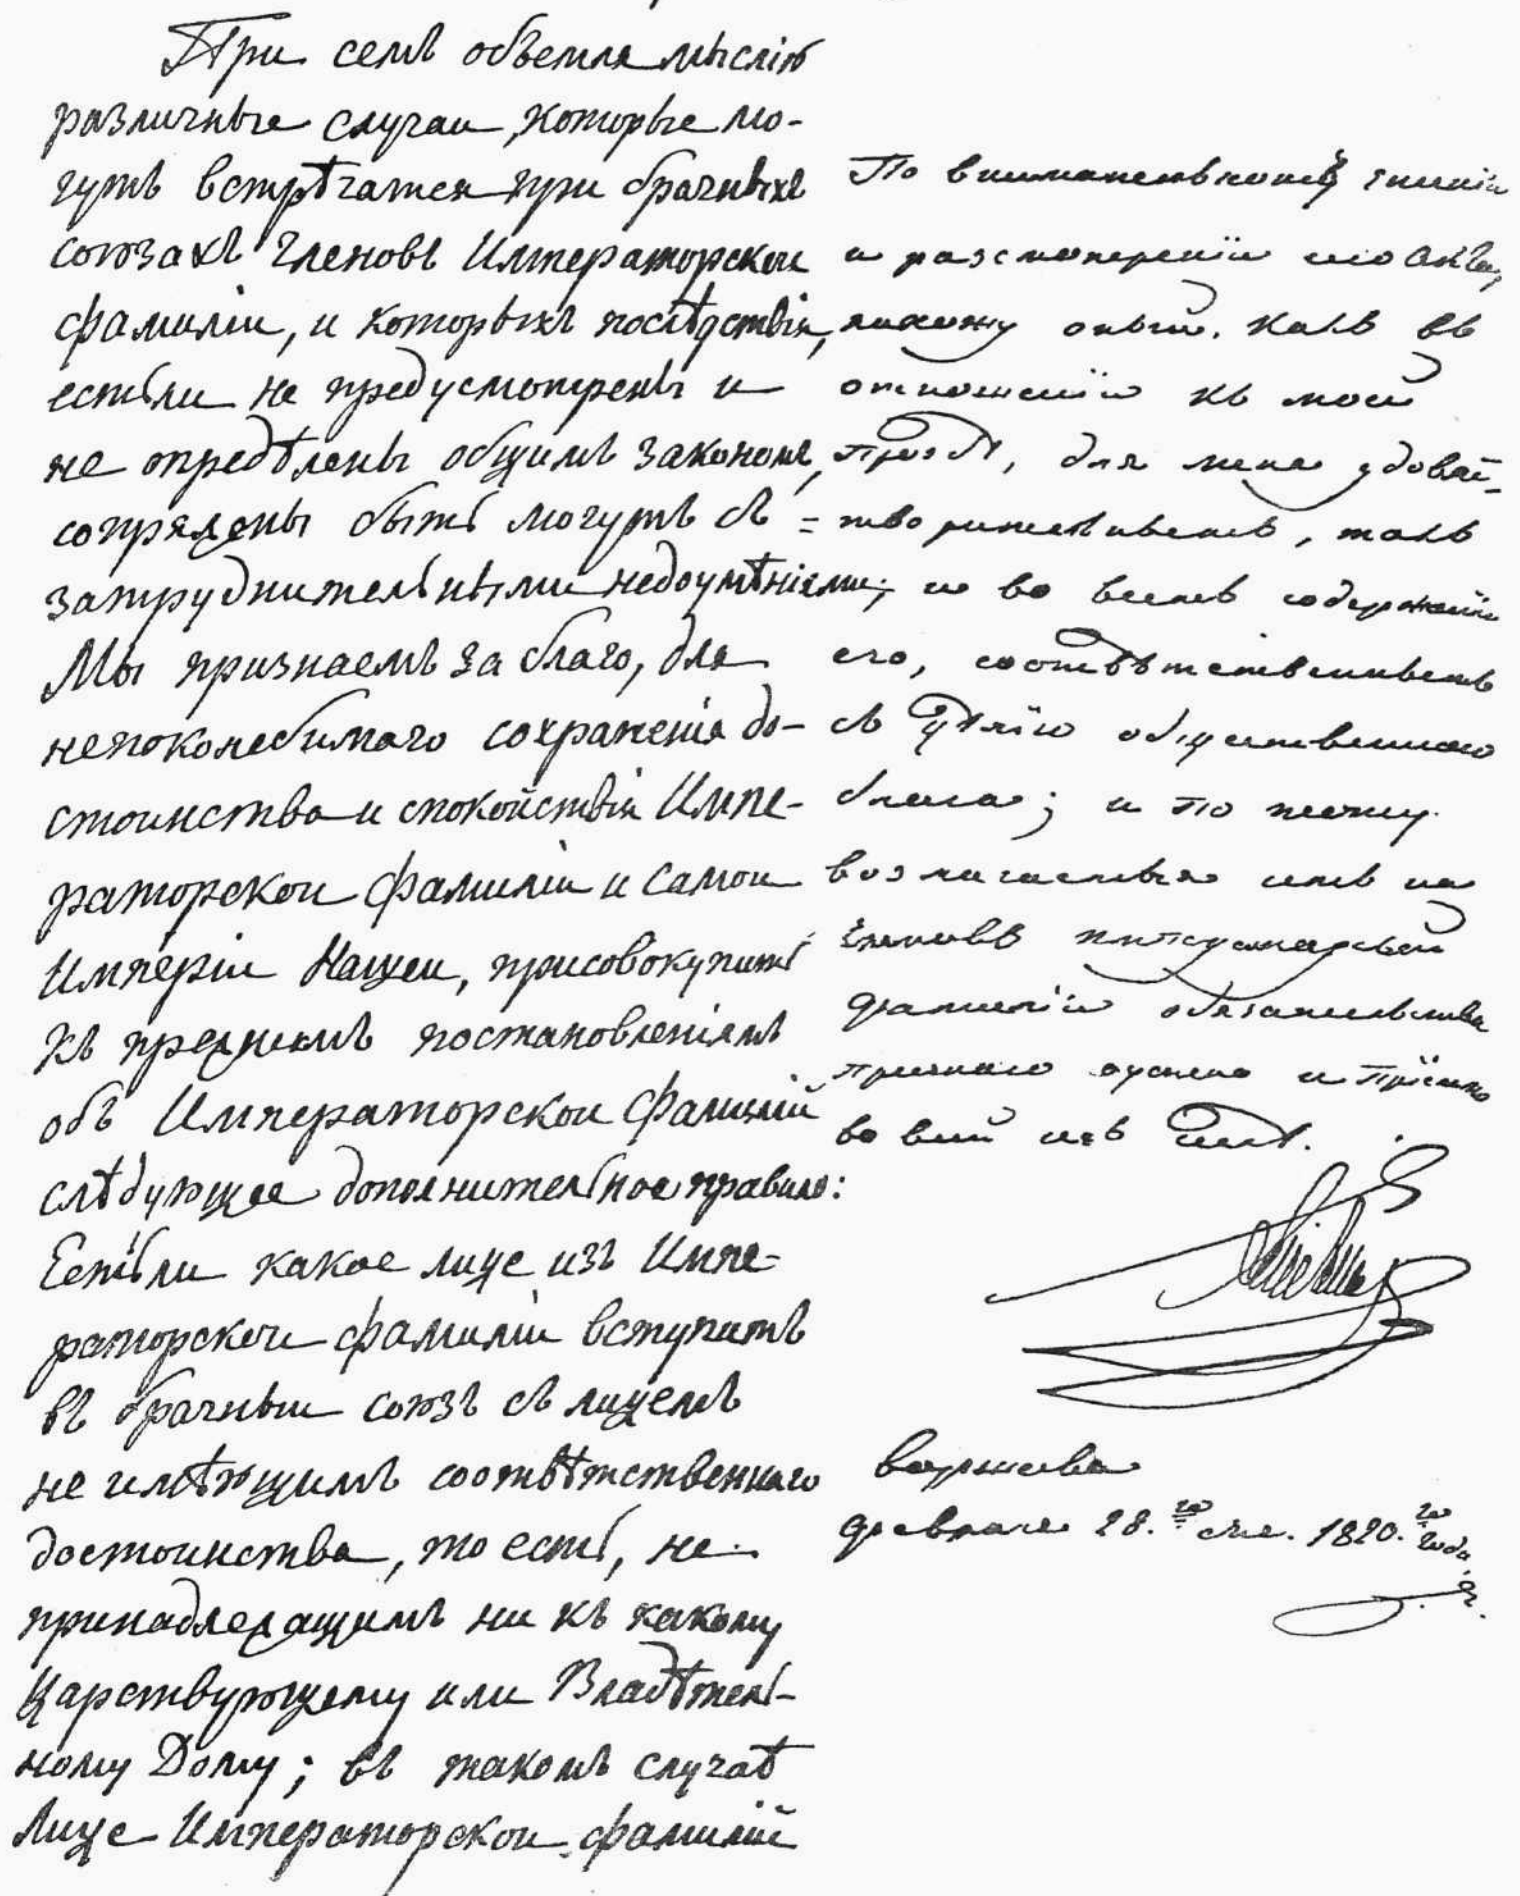 При семъ объемля мыслію
различные случаи, которые мо-
гутъ встрѣчатся при брачныхъ
союзахъ членовъ Императорскои
фамиліи, и которыхъ послѣдствія,
естьли не предусмотрены и
не опредѣлены общимъ закономъ,
сопряжены быть могутъ съ
затруднительными недоумѣніями;
Мы признаемъ за благо, для
непоколебимаго сохраненія до-
стоинства и спокойствія Импе-
раторскои фамиліи и самои
Имперіи Нашеи, присовокупить
къ прежнимъ постановленіямъ
объ Императорскои Фамиліи
слѣдующее дополнительное правило:
Естьли какое лице изъ Импе-
раторскои фамиліи вступитъ
въ брачныи союзъ съ лицемъ
не имѣющимъ соотвѣтственнаго
достоинства, то есть, не
принадлежащимъ ни къ какому
Царствующему или Владѣтель-
ному Дому; въ такомъ случаѣ
Лице Императорскои фамиліи
По внимательномъ чтеніи
и разсмотреніи сего Акта,
нахожу оный, какъ въ
отношеніи къ моей
прозбѣ, для меня удовле-
=творительнымъ, такъ
и во всемъ содержаніи
его, соотвѣтственнымъ
съ цѣлію общественнаго
блага; и по тому
возлагаемыя имъ на
членовъ императорской
фамиліи обязательства
во всей ихъ силѣ.
Варшава
февраля 28.го дня. 1820.го года.